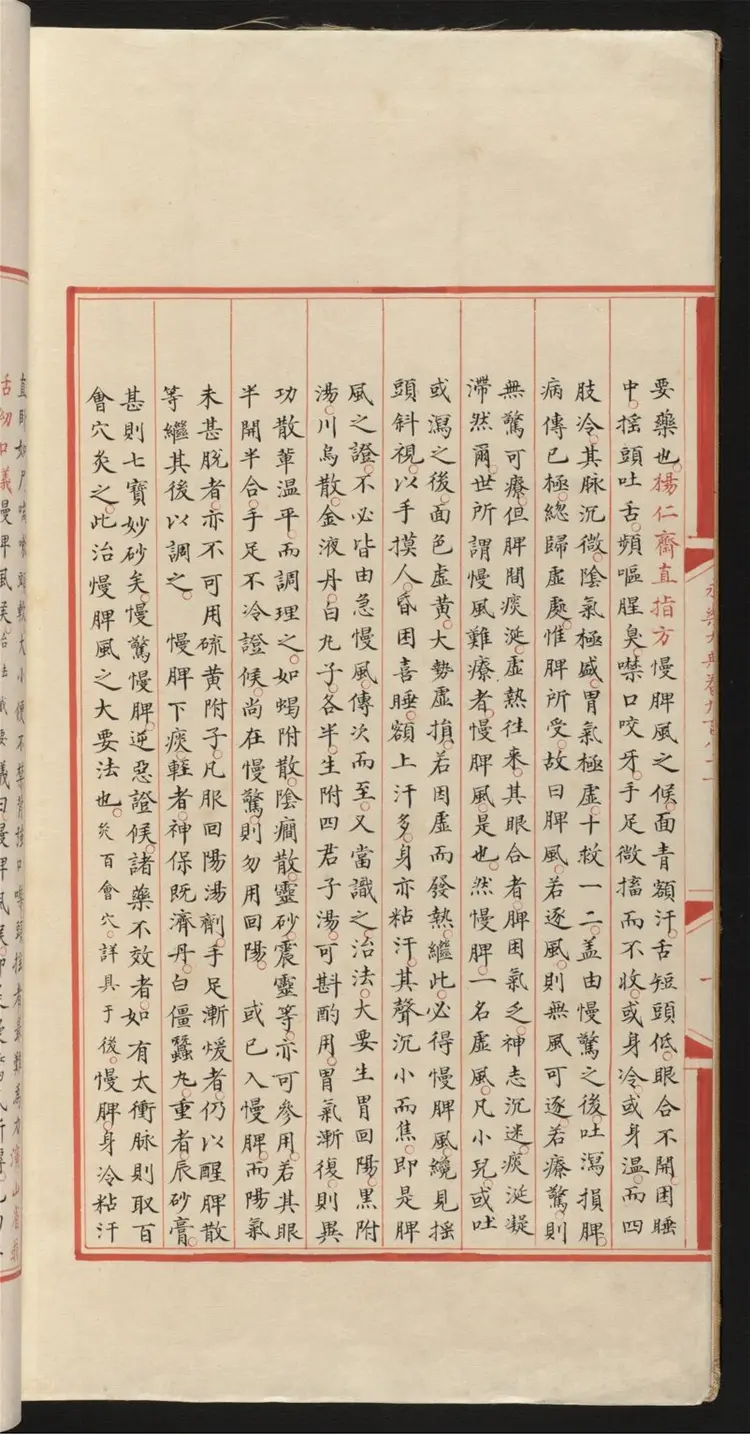 要藥也。楊仁齋直指方慢脾風之候。面青額汗。舌短頭低。眼合不開。困睡
中。搖頭吐舌。頻嘔腥臭。噤口咬牙。手足微搐而不收。或身冷。或身溫。而四
肢冷。其脉沉微。陰氣極盛。胃氣極虛。十救一二。盖由慢驚之後。吐瀉損脾。
病傳已極。緫歸虛處。惟脾所受。故曰脾風。若逐風。則無風可逐。若療驚。則
無驚可療。但脾間痰涎。虛熱徃來。其眼合者。脾困氣乏。神志沉迷。痰涎凝
滯然爾。世所謂慢風難療者。慢脾風。是也。然慢脾。一名虛風。凡小兒。或吐
或瀉之後。面色虛黃。大勢虛損。若因虛而發熱。繼此。必得慢脾風。纔見搖
頭斜視。以手摸人。昏困喜睡。額上汗多。身亦粘汗。其聲沉小而焦。即是脾
風之證。不必皆由急慢風。傳次而至。又當識之。治法。大要生胃回陽。黑附
湯。川烏散。金液丹。白丸子。各半。生附四君子湯。可斟酌用。胃氣漸復。則異
功散軰溫平。而調理之。如蝎附散。陰癎散。靈砂。震靈等。亦可參用。若其眼
半開半合。手足不冷證候。尚在慢驚。則勿用回陽。 或已入慢脾。而陽氣
未甚脫者。亦不可用硫黃附子。凡服回陽湯劑。手足漸煖者。仍以醒脾散
等繼其後以調之。 慢脾下痰。輊者。神保既濟丹。白僵蠶丸。重者辰砂膏。
甚則七寶妙砂矣。慢驚慢脾。逆惡證候。諸藥不效者。如有太衝脉則取百
會穴灸之。此治慢脾風之大要法也。灸百會穴。詳具于後。慢脾。身冷粘汗
永樂大典卷九百八十一
一